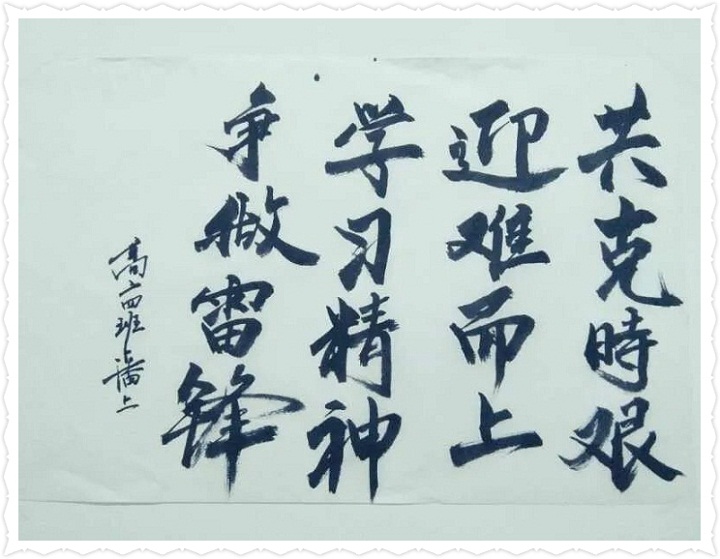 共克時艰
迎难而上
学习精神
争做雷锋
高一四班 潘上